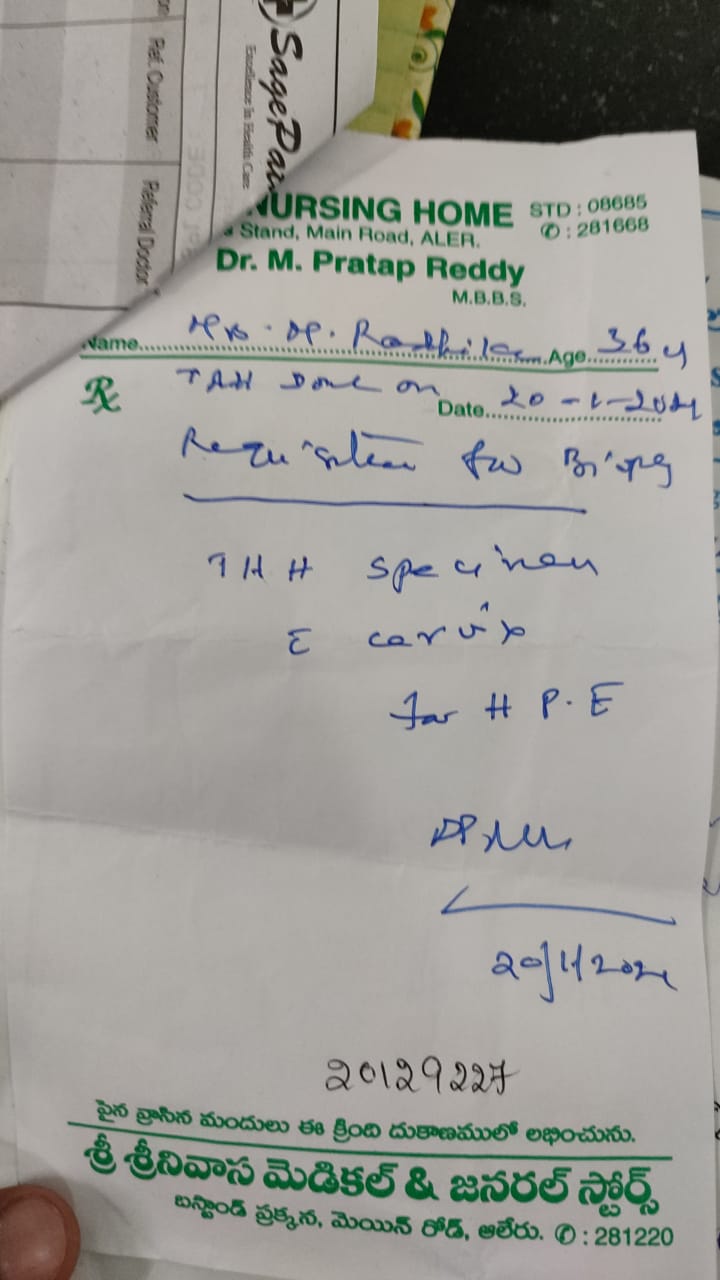 SagePa
Excellence In Health Care
Ref. Customer
Referral Doctor
NURSING HOME STD : 08685
Stand, Main Road, ALER. ✆ : 281668
Dr. M. Pratap Reddy
M.B.B.S.
Name Mrs. M. Radhika Age 36 y
℞ TAH Done on Date 20-1-2024
Requisition for Biopsy
TAH specimen
c̅ cervix
for H P. E
20/1/2024
20129227
పైన వ్రాసిన మందులు ఈ క్రింది దుకాణములో లభించును.
శ్రీ శ్రీనివాస మెడికల్ & జనరల్ స్టోర్స్
బస్టాండ్ ప్రక్కన, మెయిన్ రోడ్, ఆలేరు. ✆ : 281220